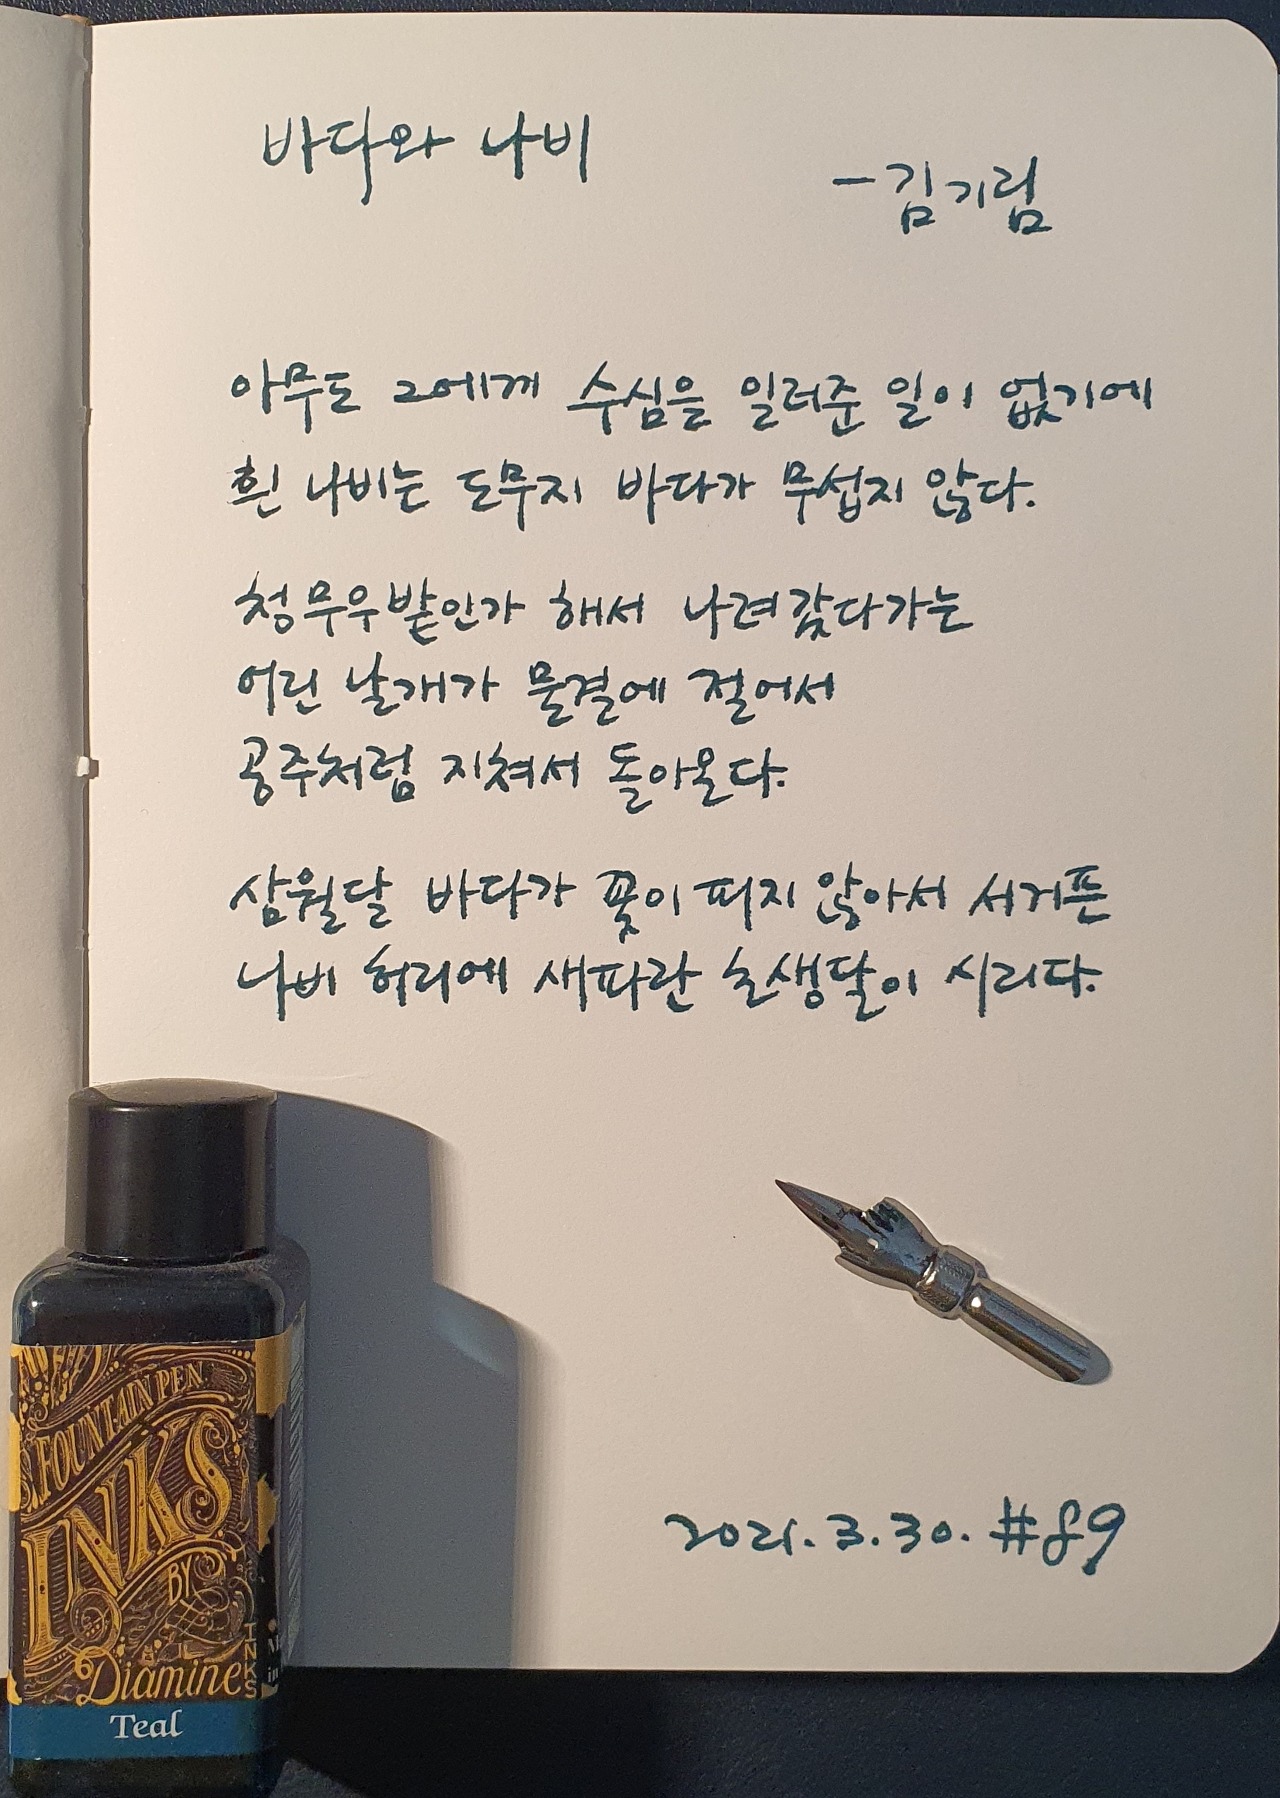 바다와 나비
-김기림
아무도 그에게 수심을 일러준 일이 없기에
흰 나비는 도무지 바다가 무섭지 않다.
청무우밭인가 해서 나려갔다가는
어린 날개가 물결에 절어서
공주처럼 지쳐서 돌아온다.
삼월달 바다가 꽃이 피지 않아서 서거픈
나비 허리에 새파란 초생달이 시리다.
FOUNTAIN PEN
INKS
BY
Diamine
INKS
Teal
2021.3.30. #89